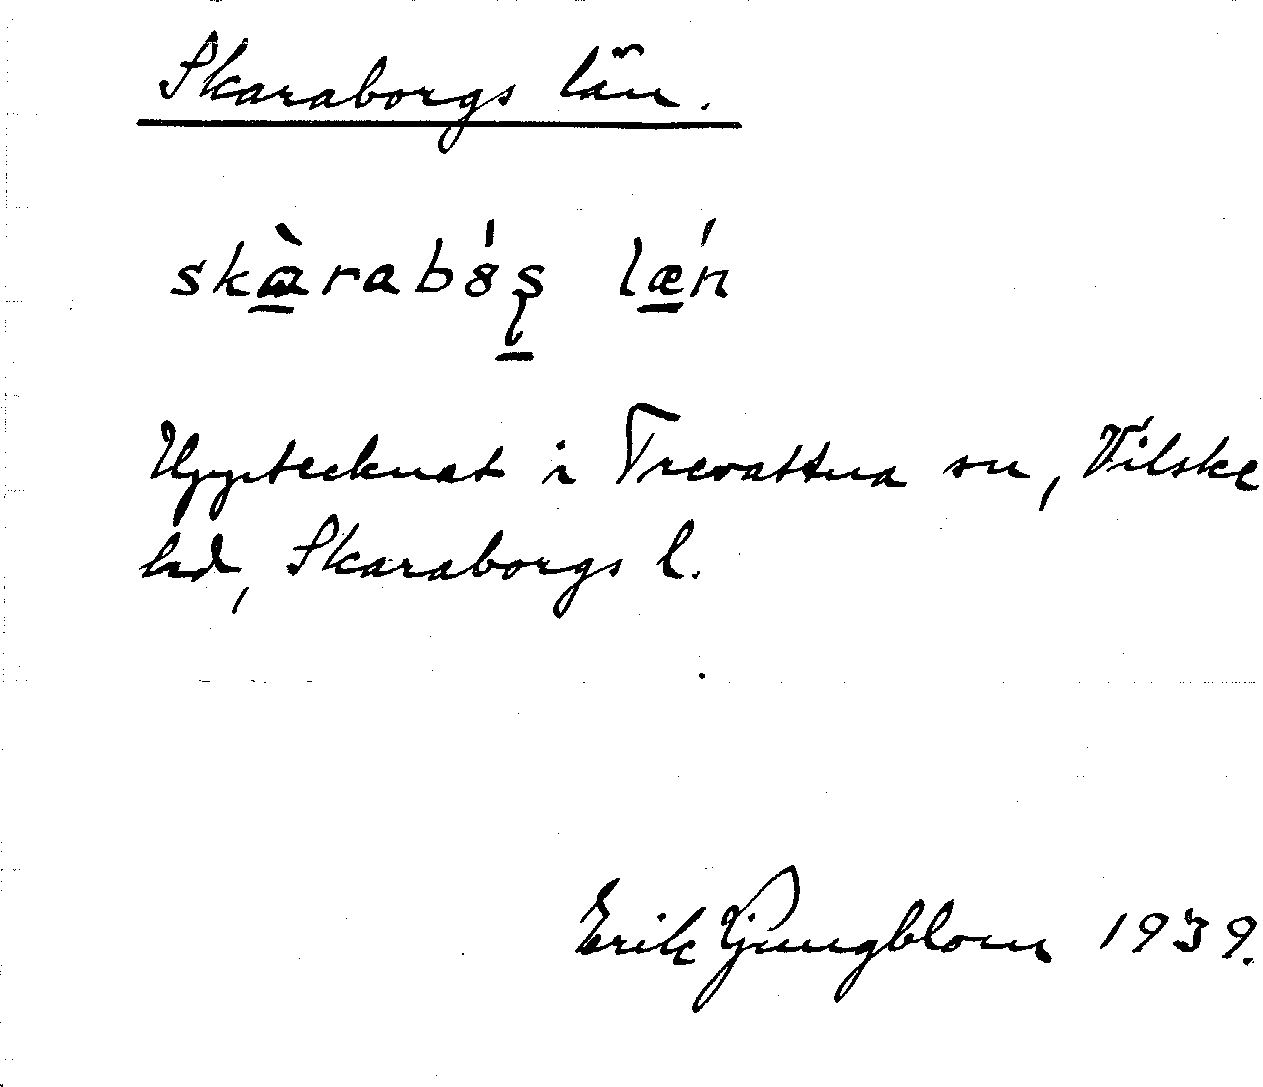 Skaraborgs län.
skàrabó8ş lǽn
Upptecknat i Trevattna sn, Vilske
hd, Skaraborgs l.
Erik Ljungblom 1939.